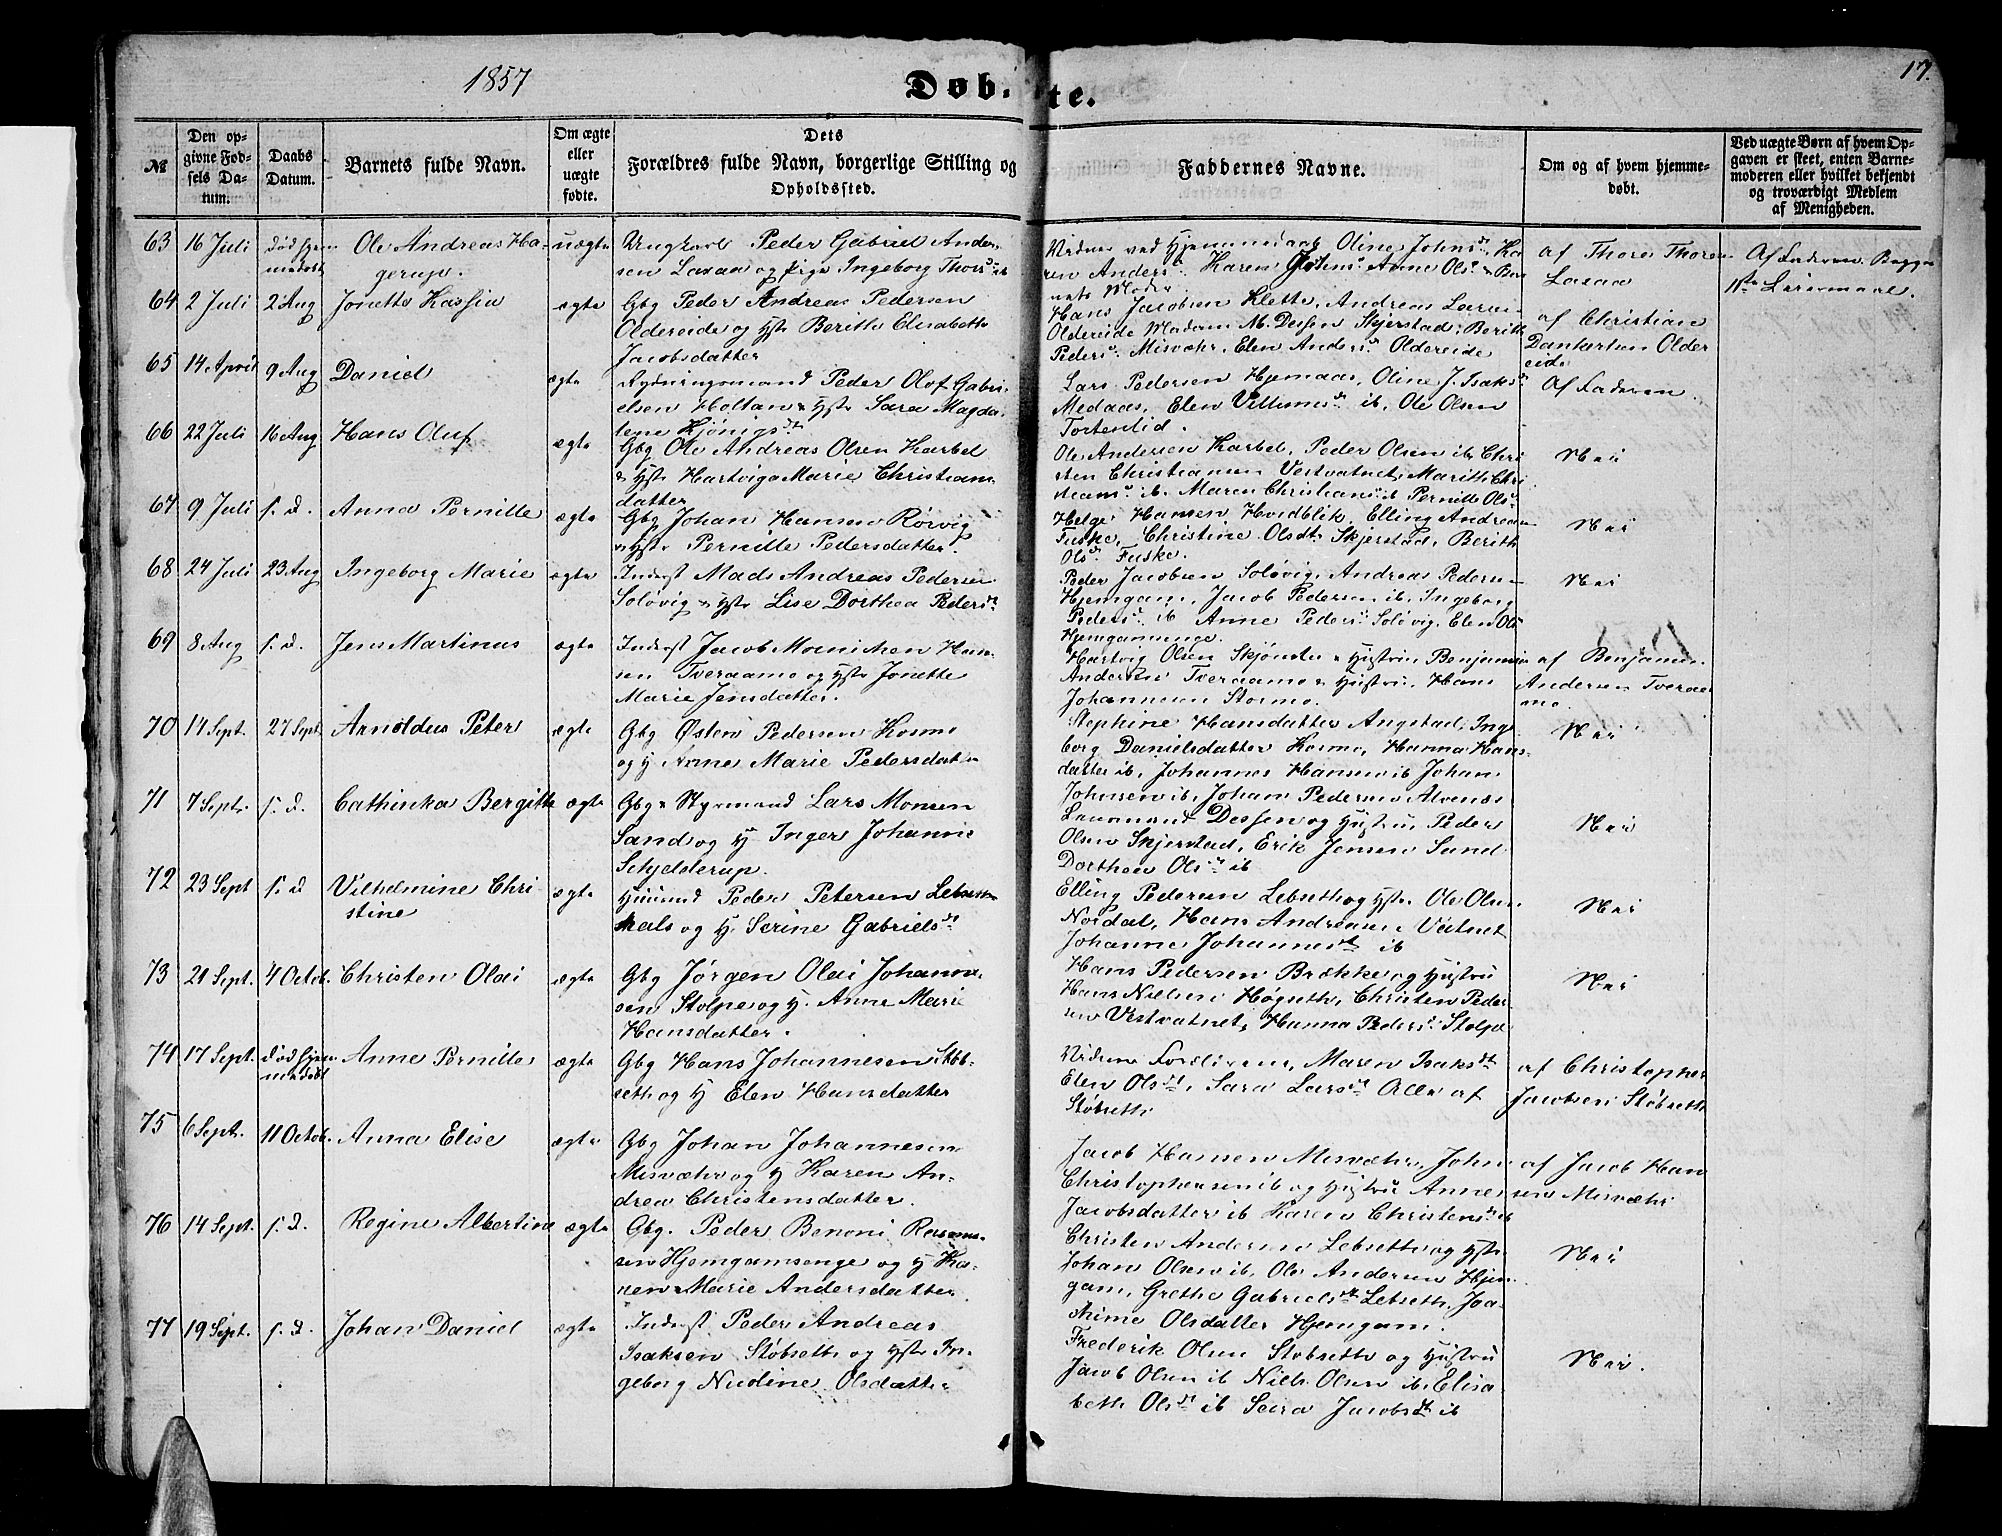 1857
Døbte.
17.
№
Den opgivne Fødsels Datum.
Daabs Datum.
Barnets fulde Navn.
Om ægte eller uægte fødte.
Dets Forældres fulde Navn, borgerlige Stilling og Opholdssted.
Faddernes Navne.
Om og af hvem hjemmedøbt.
Ved uægte Børn af hvem Opgaven er skeet, enten Barnemoderen eller hvilket bekjendt og troværdigt Medlem af Menigheden.
63 16 Juli død hjemmedøbt Ole Andreas Hagerup. uægte
Ungkarl Peder Gabriel Andersen Laxaa og pige Ingeborg Thorsdt
Vidner ved Hjemmedaab Oline Johnsdt, Karen Andersdt Karen Johnsdt Anne Olsdt Barnets Moder
af Thore Thoresen Laxaa
Af Faderen Begges 1ste Leiermaal.
64 2 Juli 2 Aug Jonette Hassia ægte
Gbg Peder Andreas Pedersen
Oldereide og Hstr Berith Elisabeth
Jacobsdatter
Hans Jacobsen Klette, Andreas Larsen
Oldereide Madam M. Dessen Skjerstad, Berith
Pedersdt Misvæhr, Elen Andersdt Oldereide
af Christian
Dankertsen Oldereide
65 14 April 9 Aug Daniel ægte
Rydningsmand Peder Olof Gabrielsen Holtan & Hstr Sara Magdalene Hjønigsdt
Lars Pedersen Hjemaas, Oline J. Isaksdt
Medaas, Elen Villumsdt ib, Ole Olsen
Tortenlid.
Af Faderen.
66 22 Juli 16 Aug Hans Oluf ægte
Gbg Ole Andreas Olsen Karbel
& Hstr Hartviga Marie Christiansdatter
Ole Andersen Karbel, Peder Olsen ib, Christen Christiansen Vestvatnet, Marith Christiansdt ib. Maren Christiansdt ib Pernille Olsdt
Nei
67 9 Juli s. d. Anna Pernille ægte
Gbg Johan Hansen Rørvig
& Hstr Pernille Pedersdatter.
Helge Hansen Hvidblik, Elling Andreasen
Fuske, Christine Olsdt Skjerstad, Berith
Olsdt Fuske.
Nei
68 24 Juli 23 Aug Ingeborg Marie ægte
Inderst Mads Andreas Pedersen
Soløvig & Hstr Lise Dorthea Pedersdt
Peder Jacobsen Soløvig, Andreas Pedersen
Hjemgam, Jacob Pedersen ib, Ingeborg
Pedersdt ib Anne Pedersdt Soløvig, Elen Olsdt
Hjemgamsenge.
Nei
69 8 Aug s. d. Jens Martinus ægte
Inderst Jacob Monichen Hansen Tveraamo og Hstr Jonette
Marie Jensdatter.
Hartvig Olsen Skjønsta & Hustru Benjamin
Andersen Tveraamo & Hustru, Hans
Johannesen Stormo.
af Benjamin
Andersen Tveraamo.
70 14 Sept. 27 Sept. Arnoldus Peter ægte
Gbg Østen Pedersen Kosmo
og H Anne Marie Pedersdatter
Stephine Hansdatter Angstad, Ingeborg Danielsdatter Kosmo, Hanna Hansdatter ib, Johannes Hansen ib Johan
Johnsen ib, Johan Pedersen Alvenæs
Nei
71 7 Sept. s. d. Cathinka Bergitte ægte
Gbg & Styrmand Lars Monsen
Sand og H Inger Johanne
Schjelderup.
Lensmand Dessen og Hustru, Peder
Olsen Skjerstad, Erik Jensen Sand
Dorthea Olsdt ib
Nei
72 23 Sept s. d Vilhelmine Christine ægte
Huusmd Peder Petersen Lebsethals og H. Serine Gabrielsdt
Elling Pedersen Lebseth og Hstr. Ole Olsen
Nordal, Hans Andreasen Vatnet
Johanne Johannesdt ib
Nei
73 21 Sept. 4 Octob. Christen Olai ægte
Gbg Jørgen Olai Johannesen Stolpe og H. Anne Marie
Hansdatter.
Hans Pedersen Brække og Hustru
Hans Nielsen Høgseth, Christen Pedersen Vestvatnet, Hanna Pedersdt Stolpe
Nei
74 17 Sept. død hjemmedøbt Anne Pernille ægte
Gbg Hans Johannesen Støbseth og H Elen Hansdatter
Vidner Forældrene, Maren Isaksdt
Elen Olsdt, Sara Larsdt Alle af
Støbseth
af Christopher
Jacobsen Støbseth
75 6 Sept. 11 Octob. Anna Elise ægte
Gbg Johan Johannesen
Misvæhr og H Karen Andrea Christensdatter.
Jacob Hansen Misvæhr, John
Christophersen ib og Hustru Anne
Jacobsdatter ib Karen Christensdt ib
af Jacob Hansen Misvæhr
76 14 Sept. s. d. Regine Albertine ægte
Gbg. Peder Benoni Rasmussen Hjemgamsenge og H Karen Marie Andersdatter
Christen Andersen Lebseth og Hstr
Johan Olsen ib, Ole Andersen Hjemgam, Grethe Gabrielsdt Lebseth, Joakime Olsdatter Hjemgam.
Nei
77 19 Sept. s. d. Johan Daniel ægte
Inderst Peder Andreas
Isaksen Støbseth og Hstr Ingeborg Nicdine Olsdatter
Frederik Olsen Støbseth og Hustru
Jacob Olsen ib Niels Olsen ib, Elisabeth Olsdt ib Sara Jacobsdt ib
Nei.